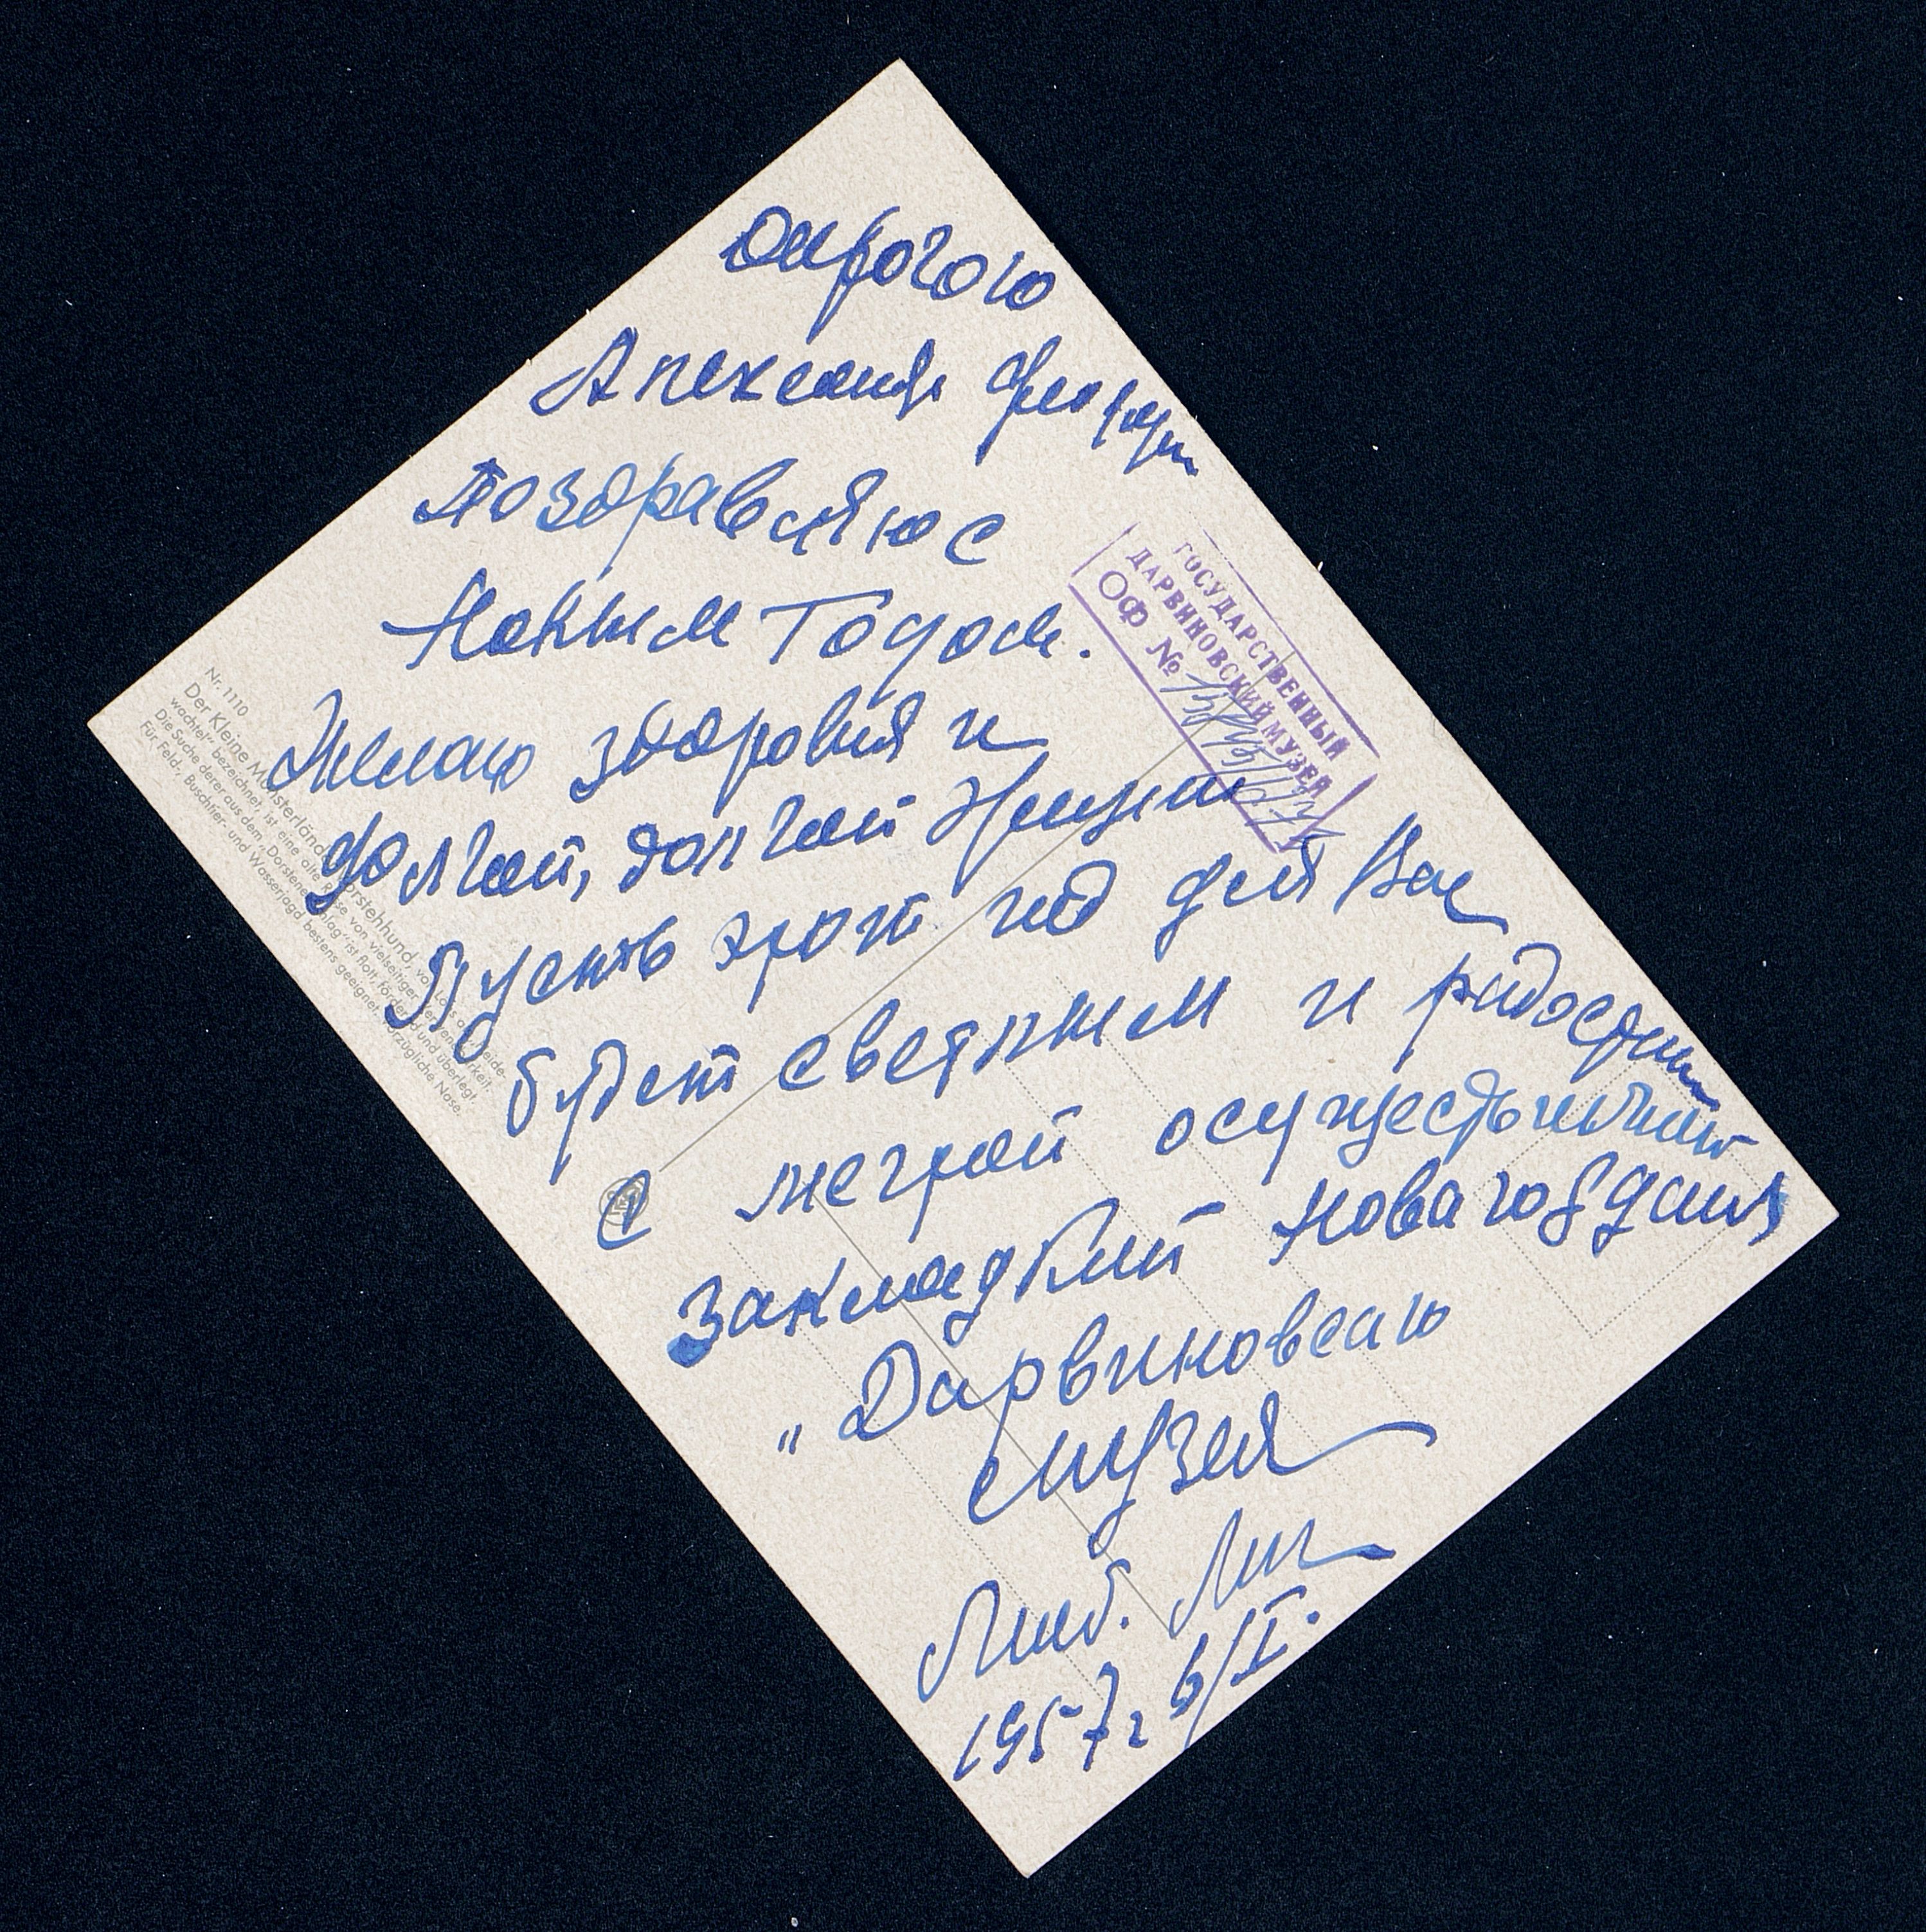 Дорогого
Александр Федор
Поздравляю с
Новым Годом.
Желаю здоровья и
долгой, долгой жизни
Пусть этот год для Вас
будет светлым и радостным
С мечтой осуществить
закладкой нового здания
„Дарвиновсаго
музея
Люб.
1957 г 6/I.
ГОСУДАРСТВЕННЫЙ
ДАРВИНОВСКИЙ МУЗЕЙ
ОФ №
Nr. 1110
Der Kleine Münsterländer Vorstehhund, von Löns als „Heide-
wachtel" bezeichnet, ist eine alte Rasse von vielseitiger Verwendbarkeit.
Die Suche derer aus dem „Dorstener Schlag" ist flott, fördernd und überlegt.
Für Feld-, Buschier- und Wasserjagd bestens geeignet. Vorzügliche Nase.